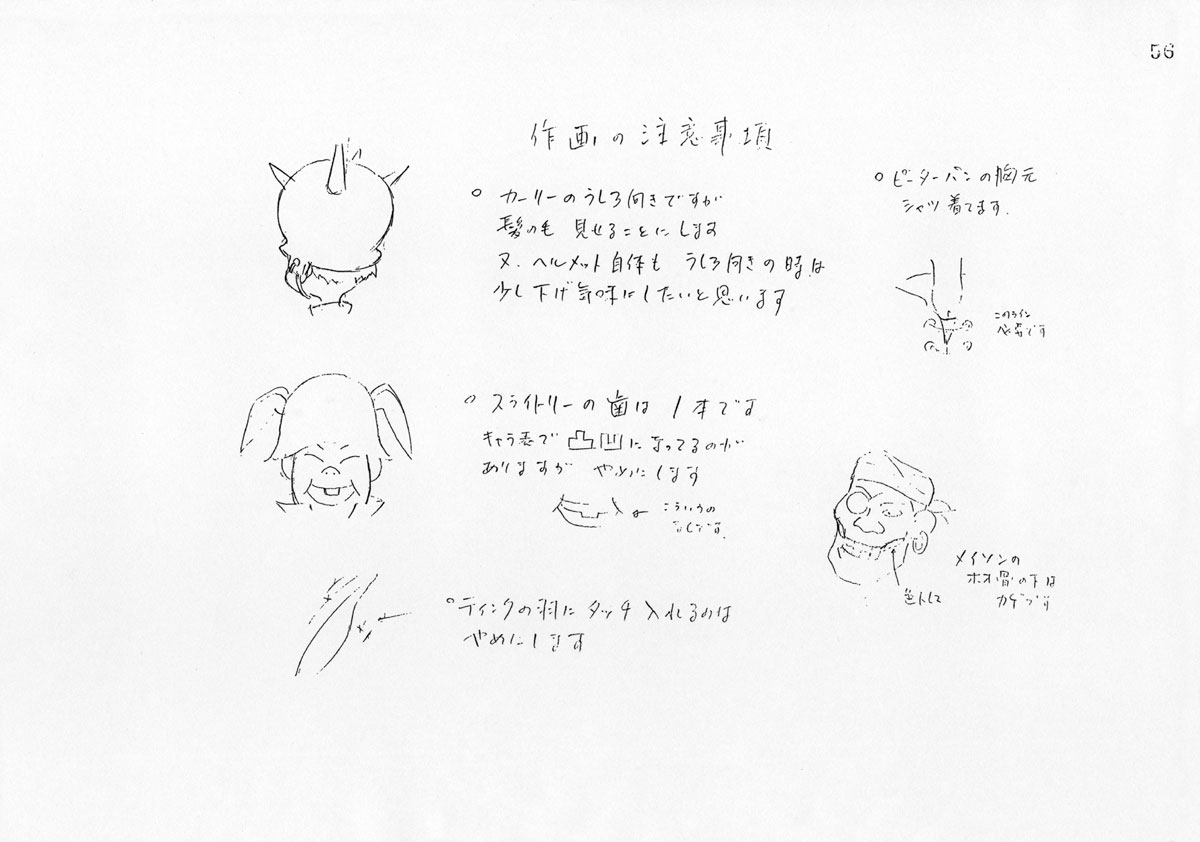 56
作画の注意事項
○ カーリーのうしろ向きですが
髪の毛 見せることにします
又、ヘルメット自体も うしろ向きの時は
少し下げ気味にしたいと思います
○ ピーターパンの胸元
シャツ着てます.
このライン
必要です
○ スライトリーの歯は 1本です
キャラ表で 凸凹になってるのが
ありますが やめにします
こういうの
なしです.
メイソンの
ホオ骨の下は
カゲです
色トレス
○ ティンクの羽に タッチ入れるのは
やめにします